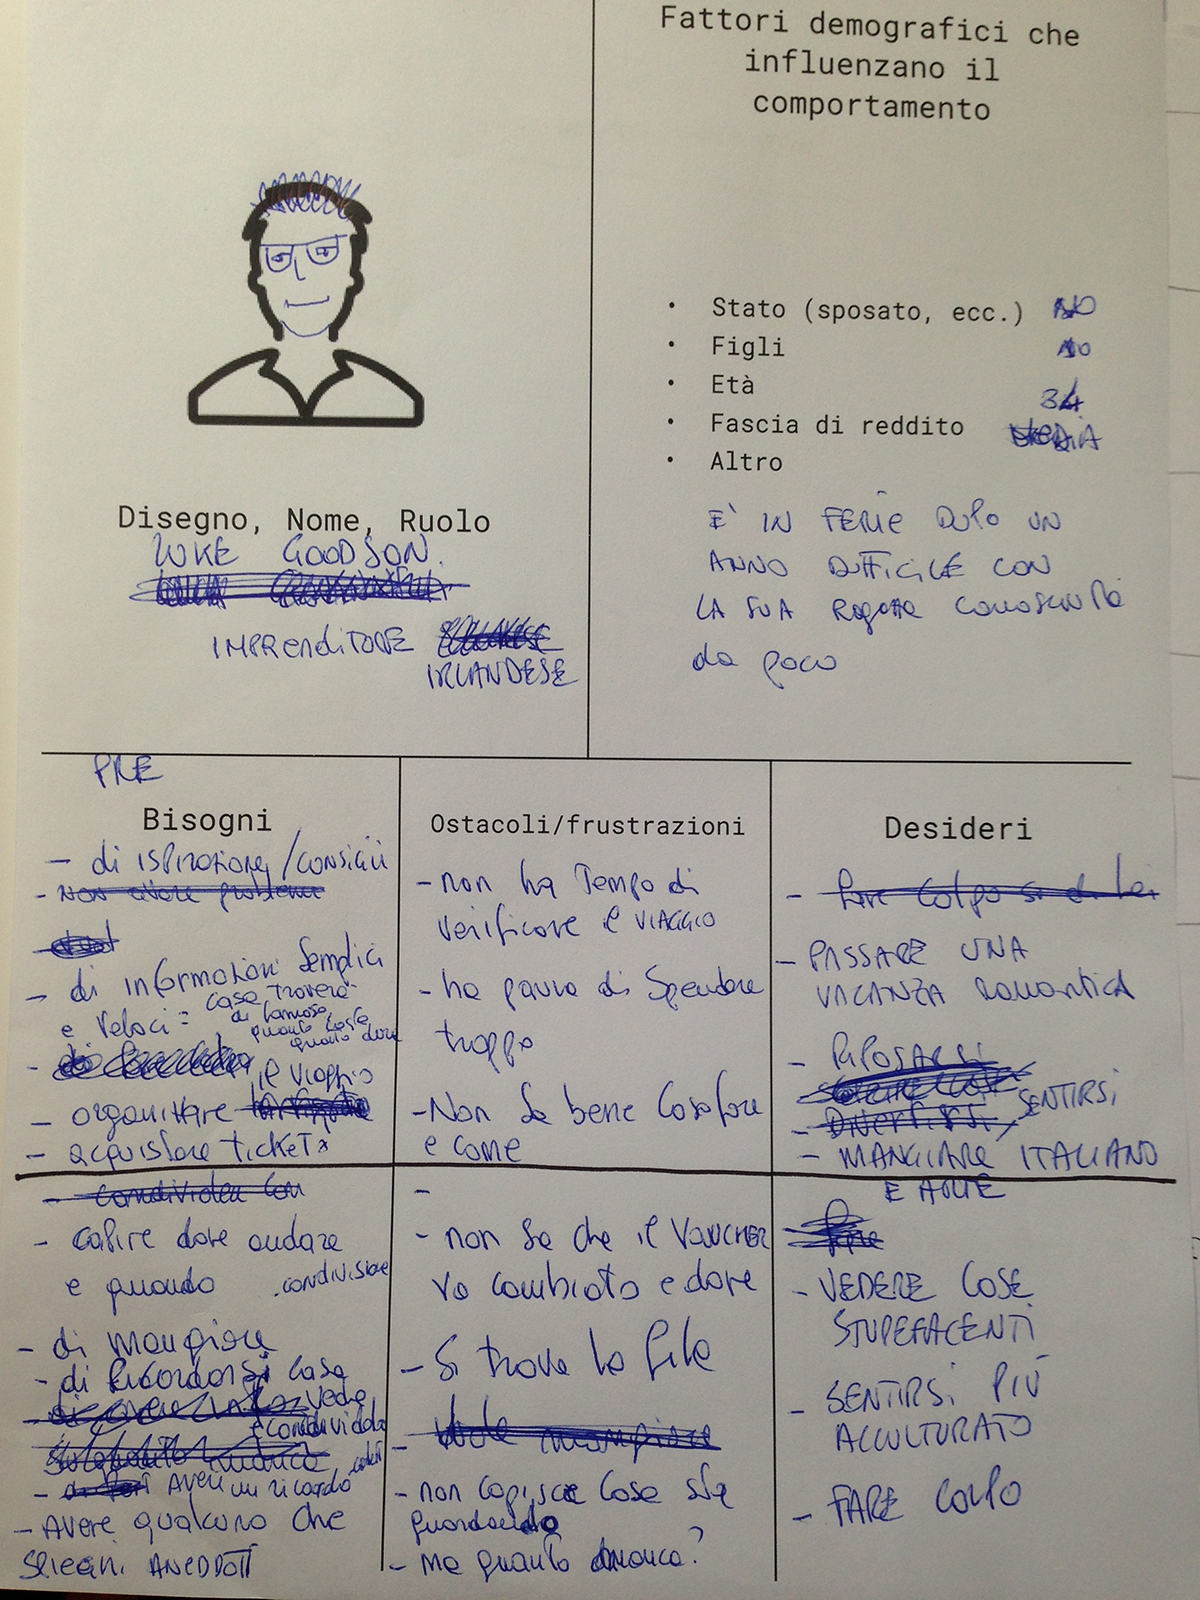 Fattori demografici che
influenzano il
comportamento
• Stato (sposato, ecc.) NO
• Figli NO
• Età 34
• Fascia di reddito MEDIA
• Altro
E' IN FERIE DOPO UN
ANNO DIFFICILE CON
LA SUA Ragazza conosciuta
da poco
Disegno, Nome, Ruolo
LUKE GOODSON.
IMPRENDITORE
IRLANDESE
PRE
Bisogni
- di ISPIRAZIONE/CONSIGLI
- Non avere problemi
- di informazioni Semplici
e Veloci: cosa troverà
di famoso
quanto costa
quanto dura
il viaggio
- organizzare
- acquistare tickets
- condividere con
- capire dove andare
e quando condivisione
- di mangiare
- di Ricordarsi cosa
vede
e condividerlo
- Avere un ricordo
- Avere qualcuno che
spieghi ANEDDOTI
Ostacoli/frustrazioni
- non ha Tempo di
verificare il VIAGGIO
- ha paura di Spendere
troppo
- Non sa bene Cosa fare
e come
-
- non sa che il VOUCHER
va cambiato e dove
- Si trova la fila
- vuole mangiare
- non capisce cosa sta
guardando
- ma quanto manca?
Desideri
- fare colpo su di lei
- PASSARE UNA
VACANZA ROMANTICA
- RIPOSARSI
- Divertirsi
SENTIRSI
- MANGIARE ITALIANO
E ARTE
- VEDERE COSE
STUPEFACENTI
- SENTIRSI PIÙ
ACCULTURATO
- FARE COLPO